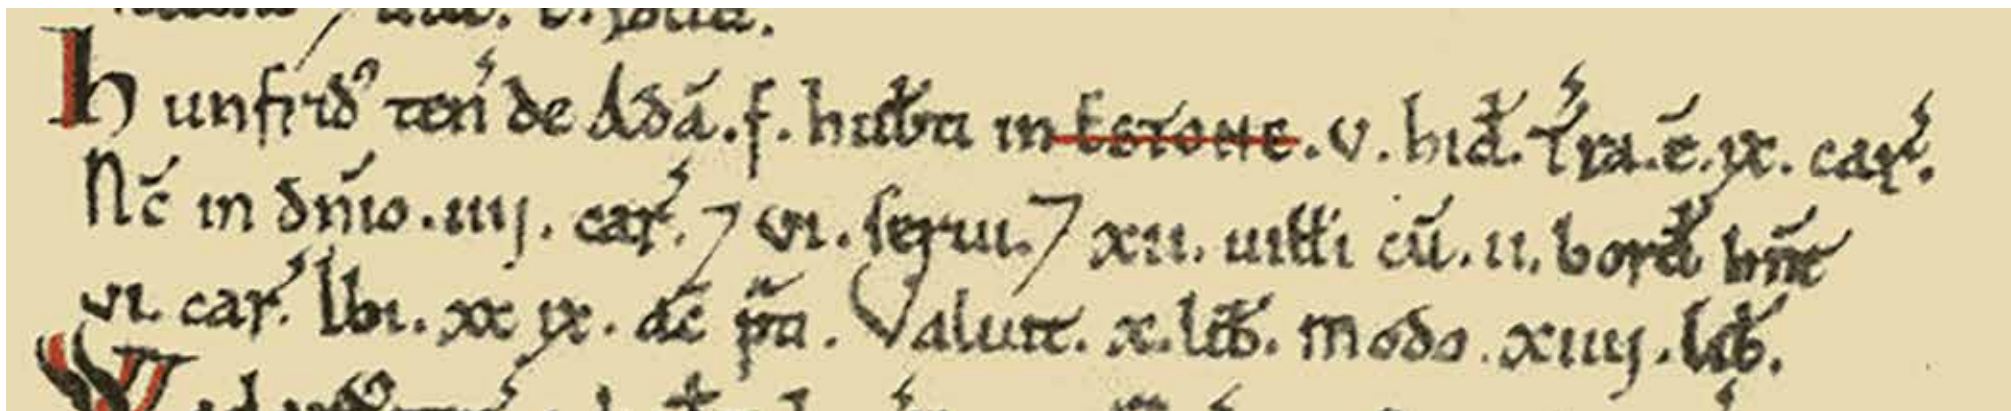 Hunfrid' ten' de Adā. f. hub'ti in ESTONE. v. hid'. T'ra. ē. ix. car'.
Nc̄ in dn̄io. iiij. car'. 7 vi. serui. 7 xii. uilłi cū. ii. bord' hn̄t
vi. car'. Ibi. xx ix. ac̄ p̄ti. Valuit. x. lib'. Modo. xiiij. lib'.